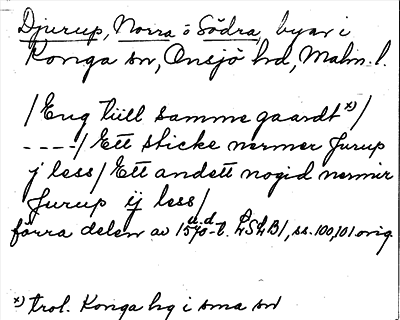 Djurup, Norra o Södra, byar i
Konga sn, Onsjö hd, Malm. l.
/Eng till samme gaardt x)/
----/ Ett sticke nermer Jurup
j less/ Ett andett nogid nermir
Jurup ij less/
förra delen av 1570-t. LSLB1, ss. 100, 101 orig
x) trol. Konga by i sma sn